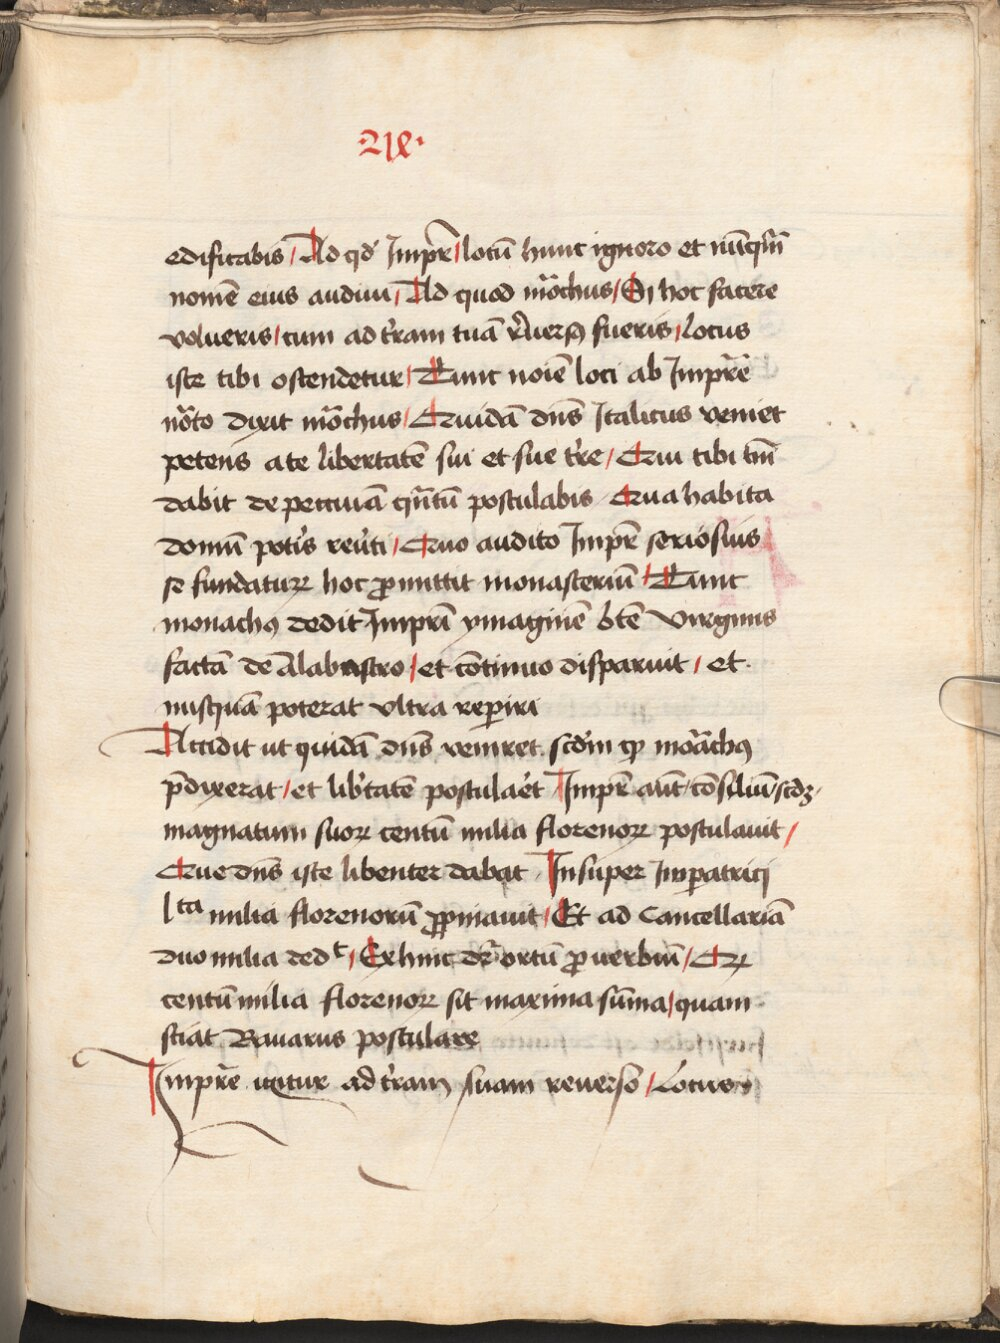 ·218·
edificabis / Ad qd̛ Imp̄r / locū hunc ignoro et nūq̄m̄
nomē eius audiui / Ad quod mōchus / Si hoc facere
volueris / cum ad t̄ram tuā r̄uersꝰ fueris / locus
iste tibi ostendetur / Tunc noīe loci ab Imp̄re
nōto dixit mōchus / Quidā dn̄s Italicus veniet
petens a te libertatē sui et sue tr̄e / Qui tibi tm̄
dabit de peccuīā qn̄tū postulabis Qua habita
domū pot̛is reưti / Quo audito Imp̄r seriosius
se fundaturꝝ hoc ꝓmittit monasteriū / Tunc
monachꝰ dedit Imp̄ri ymaginē b̄te Virginis
factā de Alabastro / et cōtinuo disparuit / et
nusquā poterat vltra reperiri
Accidit ut quidā dn̄s veniret scd̄m ꝙ mōachꝰ
p̄dixerat / et lib̛tatē postulaēt Imp̄r aūt cōsiliū scdꝫ
magnatum suoꝝ centū milia florenoꝝ postulauit /
Que dn̄s iste libenter dabat Insuper Imp̄atrici
lta milia florenorū ꝓpinauit / Et ad Cancellariā
duo milia dedt / Exhinc dr̄ ortū ꝓuerbiū / Qꝫ
centū milia florenoꝝ sit maxima sūma / quam
sciat Bauarus postulare
Imp̄re igitur ad t̄ram suam reuerso / Locus